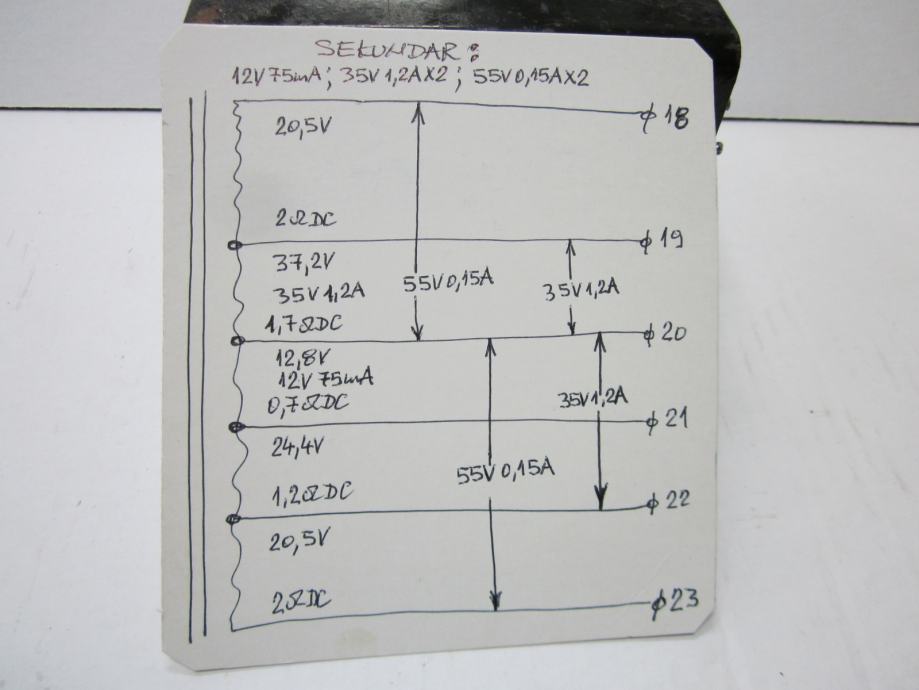 SEKUNDAR:
12V 75mA; 35V 1,2A X2; 55V 0,15A X2
20,5V
18
2ΩDC
19
37,2V
35V 1,2A
55V 0,15A
35V 1,2A
1,7ΩDC
20
12,8V
12V 75mA
0,7ΩDC
35V 1,2A
21
24,4V
55V 0,15A
1,2ΩDC
22
20,5V
2ΩDC
23